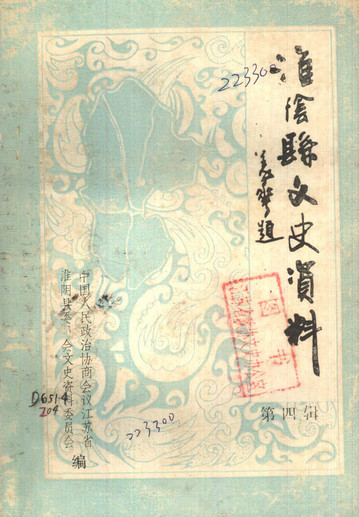 淮陰縣文史資料
题
223300
第四辑
中国人民政治协商会议江苏省
淮阴县委员会文史资料委员会
编
D651.4
204
223300